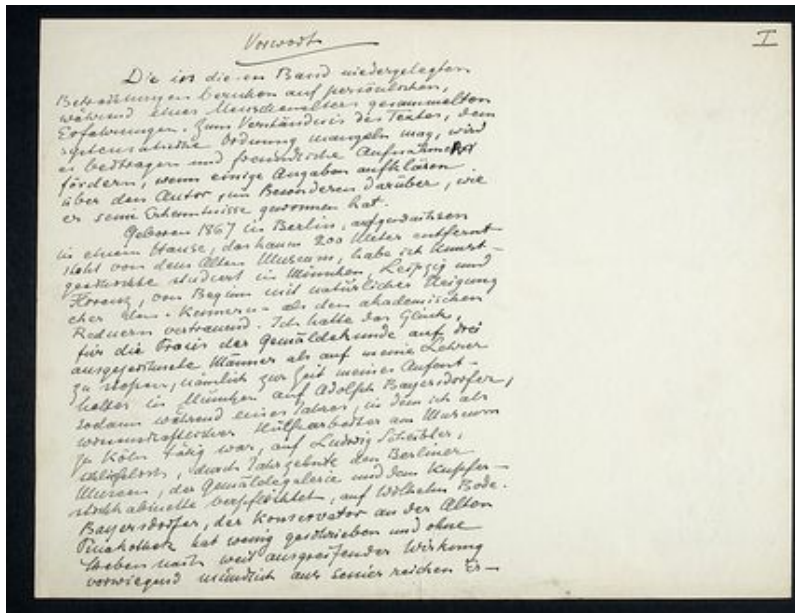 I
Vorwort
Die in diesem Band niedergelegten
Betrachtungen beruhen auf persönlichen,
während eines Menschenalters gesammelten
Erfahrungen. Zum Verständnis des Textes, dem
systematische Ordnung mangeln mag, wird
es beitragen und freundliche Aufnahme
fördern, wenn einige Angaben aufklären
über den Autor, im Besonderen darüber, wie
er seine Erkenntnisse gewonnen hat.
Geboren 1867 in Berlin, aufgewachsen
in einem Hause, das kaum 200 Meter entfernt
steht von dem Alten Museum, habe ich Kunst-
geschichte studiert in München, Leipzig und
Florenz, von Beginn mit natürlicher Neigung
eher den Kennern als den akademischen
Rednern vertrauend. Ich hatte das Glück,
für die Praxis der Gemäldekunde auf drei
ausgezeichnete Männer als auf meine Lehrer
zu stossen, nämlich zur Zeit meines Aufent-
haltes in München auf Adolph Bayersdorfer,
sodann während eines Jahres, in dem ich als
wissenschaftlicher Hülfsarbeiter am Museum
zu Köln tätig war, auf Ludwig Scheibler,
schließlich, durch Jahrzehnte den Berliner
Museen, der Gemäldegalerie und dem Kupfer-
stichkabinette verpflichtet, auf Wilhelm Bode.
Bayersdorfer, der Konservator an der Alten
Pinakothek hat wenig geschrieben und ohne
Streben nach weit ausgreifender Wirkung
vorwiegend mündlich aus seiner reichen Er-